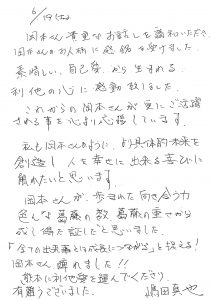 6/19(土)
岡本さん貴重なお話しを講和いただき
岡本さんのお人柄に感銘を受けました。
素晴しい、自己愛から生まれる
利他の心に感動致しました。
これからの岡本さんが更にご活躍
される事を心より応援しています。
私も岡本さんのように、より具体的未来を
創造し 人を幸せに出来る喜びに
触れたいと思います。
岡本さんが、歩まれた向き合う力
色んな葛藤の数 葛藤の重さから
成し得た証しだと思いました。
「全ての出来事とは成長につながる」と捉える!
岡本さん 痺れました!!
熊本に利他愛を運んでくださり
有難うございました。 嶋田真也